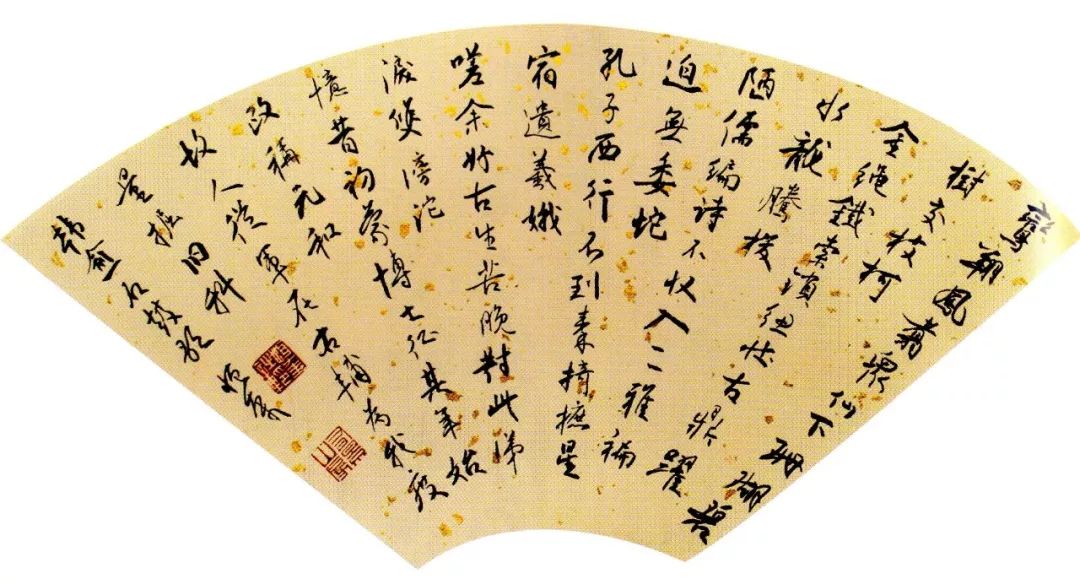 鸞翔鳳翥衆仙下珊瑚碧
樹交枝柯
金繩鐵索鎖紐壯古鼎躍
水龍騰梭
陋儒編詩不收入二雅褊
迫無委蛇
孔子西行不到秦掎摭星
宿遺羲娥
嗟余好古生苦晚對此涕
淚雙滂沱
憶昔初蒙博士征其年始
改稱元和
故人從軍在右輔為我度
量掘臼科
韓愈石鼓歌